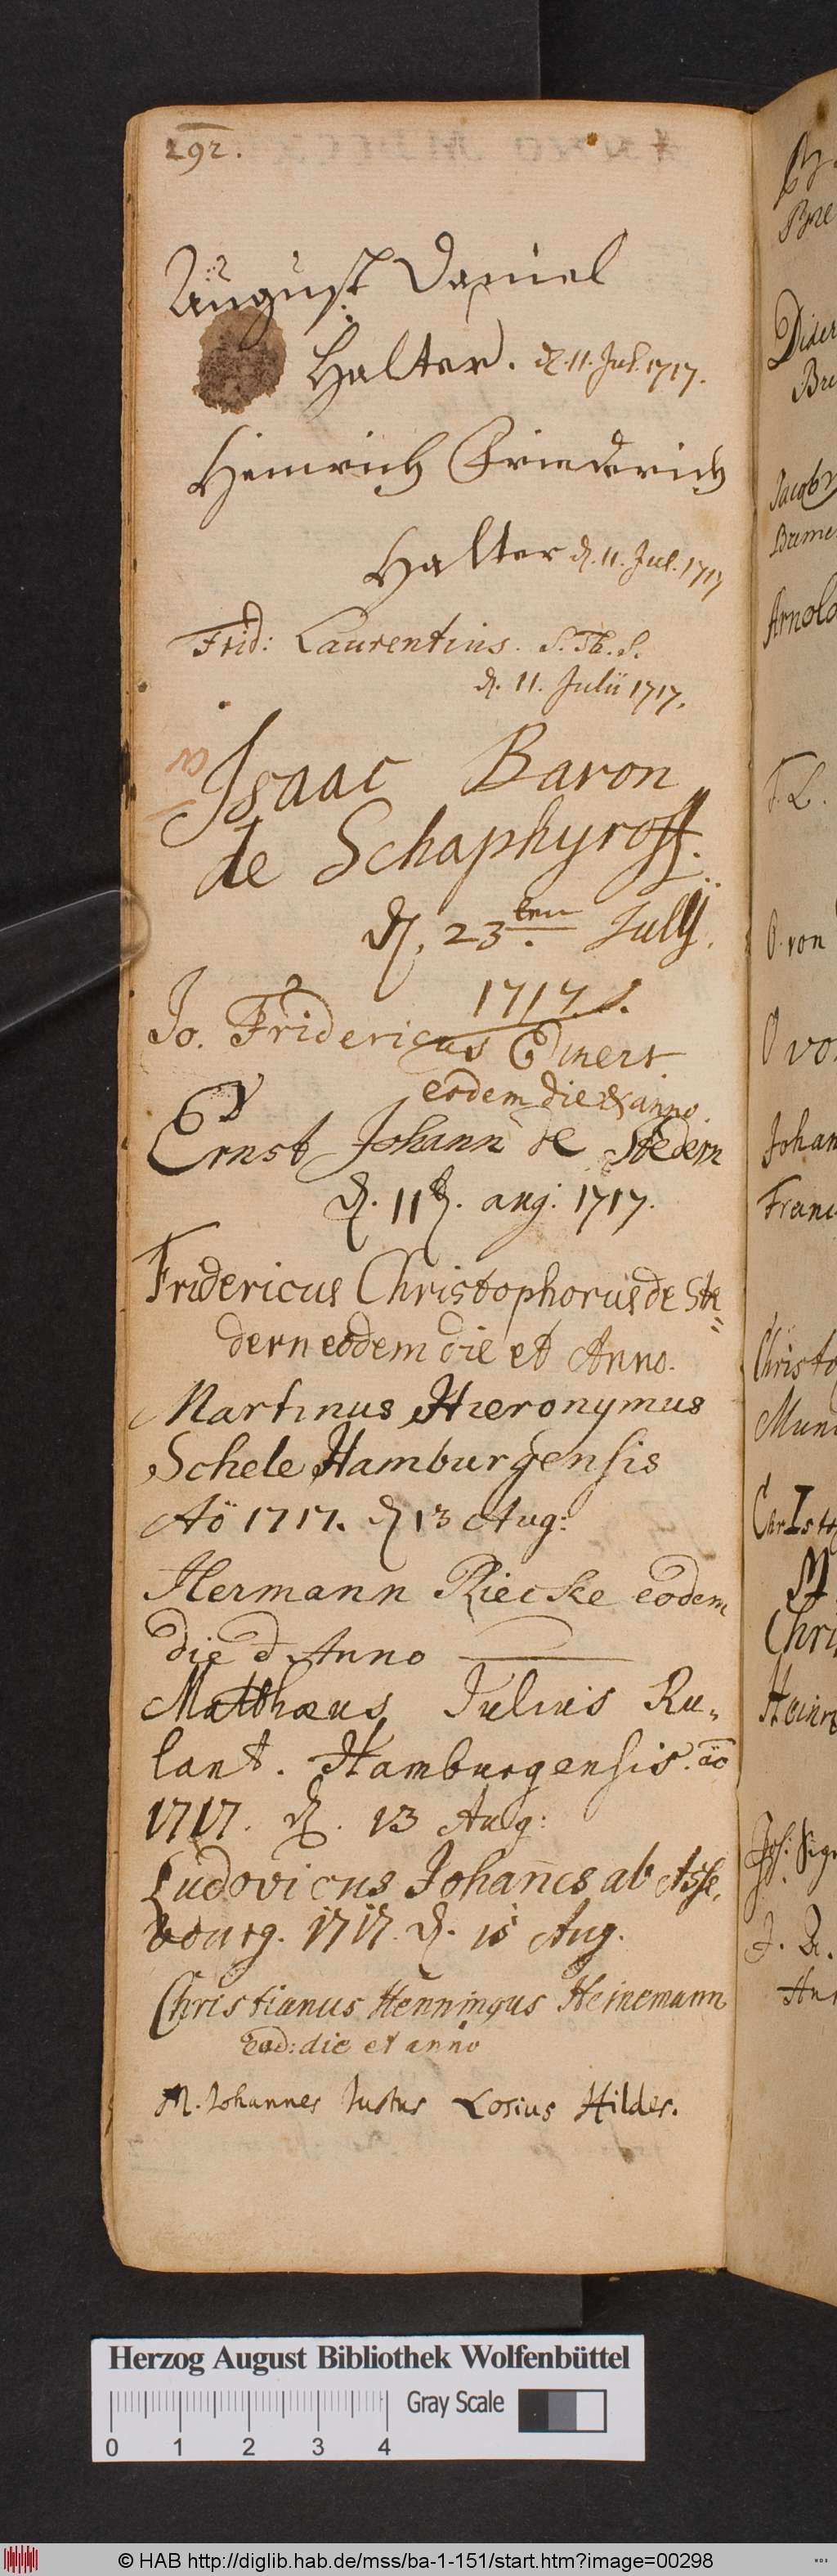 292.
August Daniel
Halter. d. 11. Jul. 1717.
Heinrich Friederich
Halter d. 11. Jul. 1717
Frid: Laurentius. S. Th. S.
d. 11. Julii 1717.
Isaac Baron
de Schaphyroff.
d. 23ten July.
1717.
Jo. Fridericus Einert
eodem die & anno.
Ernst Johann de Stedern
d. 11t. aug. 1717.
Fridericus Christophorus de Ste=
dern eodem die et Anno.
Martinus Hieronymus
Schele Hamburgensis
Aö 1717. d 13 Aug:
Hermann Riecke eodem
die & Anno
Matthæus Julius Ru=
lant. Hamburgensis. ao
1717. d. 13 Aug:
Ludovicus Johañes ab Asse,
bourg. 1717. d. 15 Aug.
Christianus Henningus Heinemann
Eod: die et anno
M. Johannes Justus Losius Hildes.
Bre
Dider
Bre
Jacob
Breme
Arnold
T. L.
O. von
O vo
Johan
Franc
Christo
Mun
ChrIsto
M
Chri
Heinr
Joh: Sig
J. A.
Han
Herzog August Bibliothek Wolfenbüttel
Gray Scale
0 1 2 3 4
© HAB http://diglib.hab.de/mss/ba-1-151/start.htm?image=00298